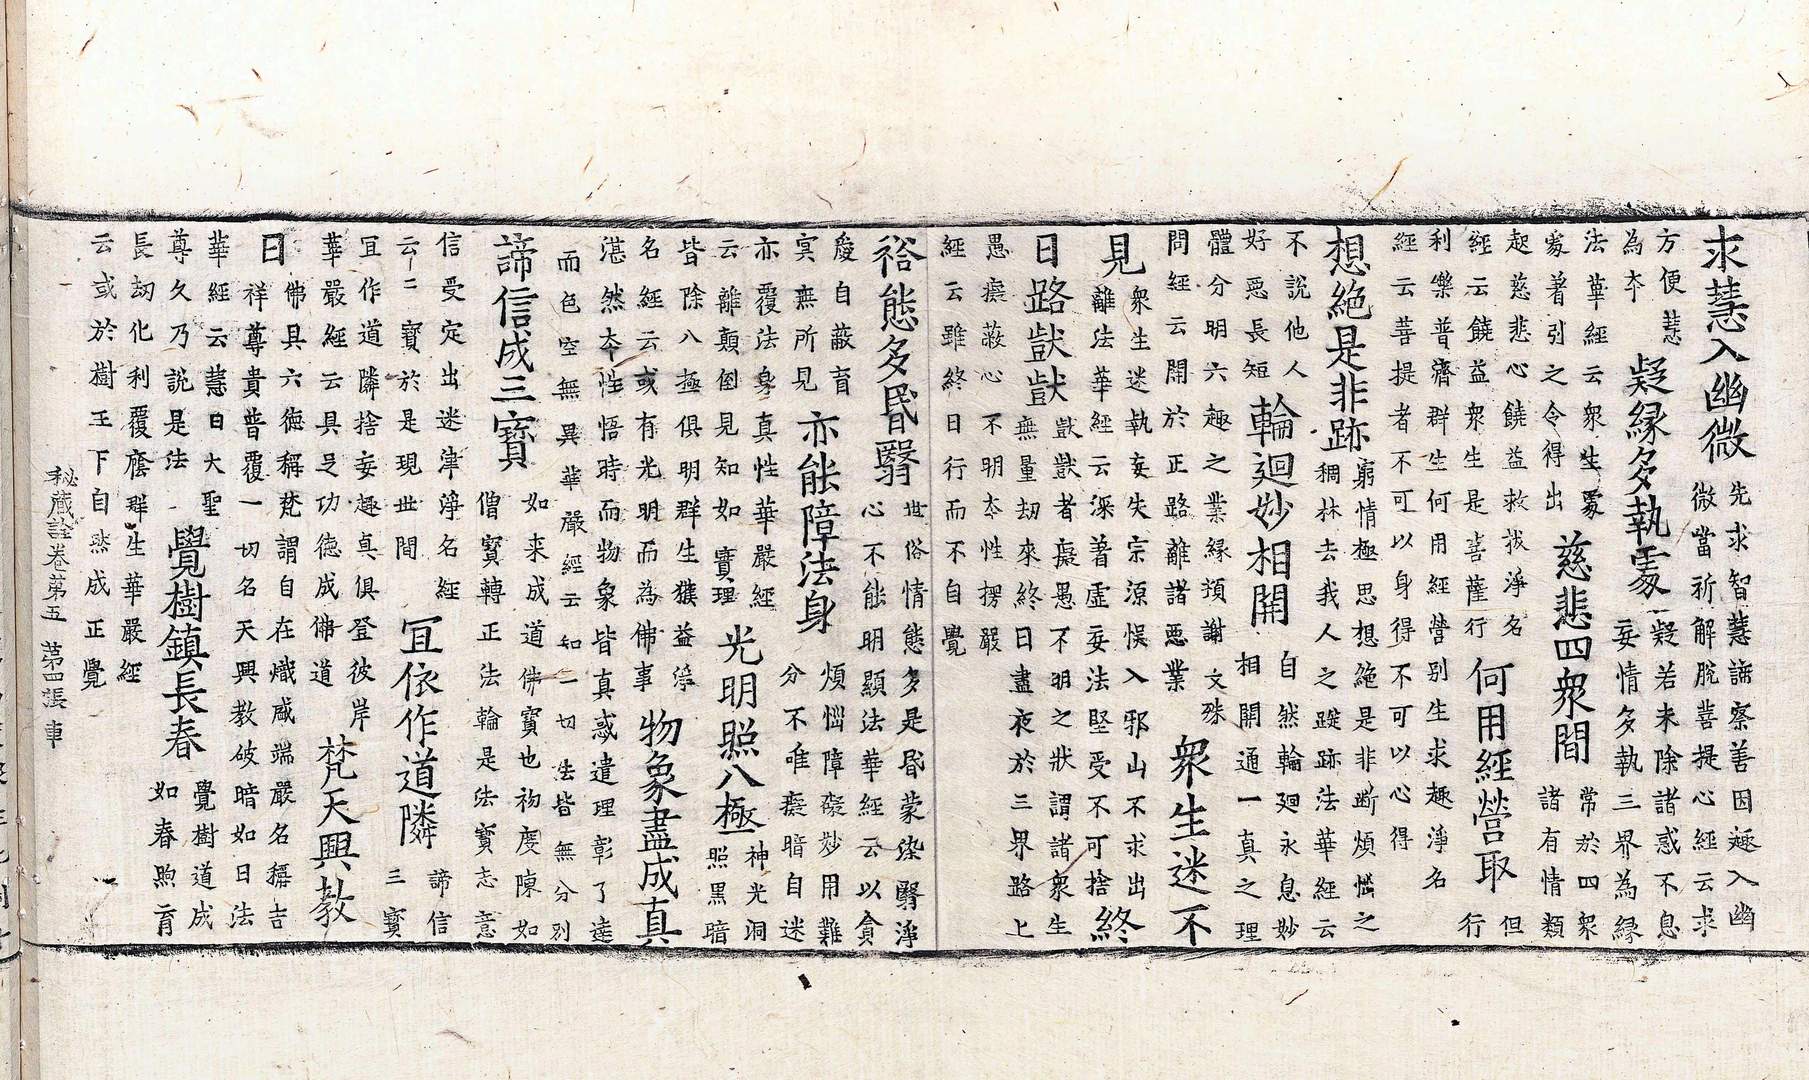 求慧入幽微
先求智慧諦察善因趣入幽
微當祈解脫菩提心經云求
方便慧
為本
疑緣多執處
疑若未除諸惑不息
妄情多執三界為緣
法華經云衆生處
處著引之令得出
慈悲四衆間
常於四衆
諸有情類
起慈悲心饒益救拔淨名
經云饒益衆生是菩薩行
何用經營取
但
行
利樂普濟群生何用經營别生求趣淨名
經云菩提者不可以身得不可以心得
想絕是非跡
窮情極思想絕是非断煩惱之
稠林去我人之蹤跡法華經云
不說他人
好惡長短
輪迴妙相開
自然輪廻永息妙
相開通一真之理
體分明六趣之業緣頓謝文殊
問經云開於正路離諸惡業
衆生迷不
見
衆生迷執妄失宗源悞入邪山不求出
離法華經云深著虛妄法堅受不可捨
終
日路獃獃
獃獃者癡愚不明之狀謂諸衆生
無量劫來終日盡夜於三界路上
愚癡蔽心不明本性楞嚴
經云雖終日行而不自覺
俗態多昏翳
世俗情態多是昏蒙染翳淨
心不能明顯法華經云以貪
慶自蔽盲
冥無所見
亦能障法身
煩惱障礙妙用難
分不唯癡暗自迷
亦覆法身真性華嚴經
云離顛倒見知如實理
光明照八極
神光洞
照黑暗
皆除八極俱明群生獲益淨
名經云或有光明而為佛事
物象盡成真
湛然本性悟時而物象皆真惑遣理彰了達
而色空無異華嚴經云知一切法皆無分别
諦信成三寶
如来成道佛寶也初度陳如
僧寶轉正法輪是法寶志意
信受定出迷津淨名經
云二寶於是現世間
宜依作道隣
諦信
三寶
宜作道隣捨妄趣真俱登彼岸
華嚴經云具足功德成佛道
梵天興教
日
佛具六德稱梵謂自在熾盛端嚴名稱吉
祥尊貴普覆一切名天興教破暗如日法
華經云慧日大聖
尊久乃說是法
覺樹鎮長春
覺樹道成
如春煦育
長劫化利覆廕群生華嚴經
云或於樹王下自然成正覺
秘藏詮卷第五 第四張 車